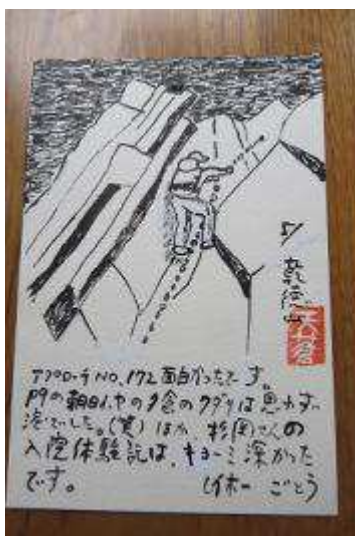 乾徳山
アプローチNO,172面白かったです。
門の朝日1,ヤの夕食のクダリは思わず
涙でした。(笑) ほか 杉岡さんの
入院体験記は、キョーミ深かった
です。
ごとう